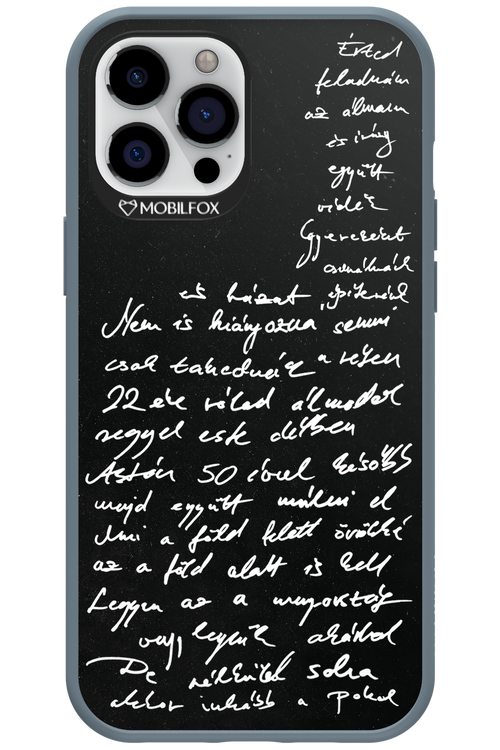 MOBILFOX
Érted
feladnám
az álmaim
és irány
együtt
vidék
Gyerekeket
csinálnánk
és házat építenék
Nem is hiányozna semmi
csak
22 éve rólad álmodok
reggel este délben
Aztán 50 évvel később
majd együtt múlni el
Ami a föld felett örökké
az a föld alatt is kell
Legyen az a menyország
vagy legyünk akárhol
De nélküled soha
akkor inkább a Pokol